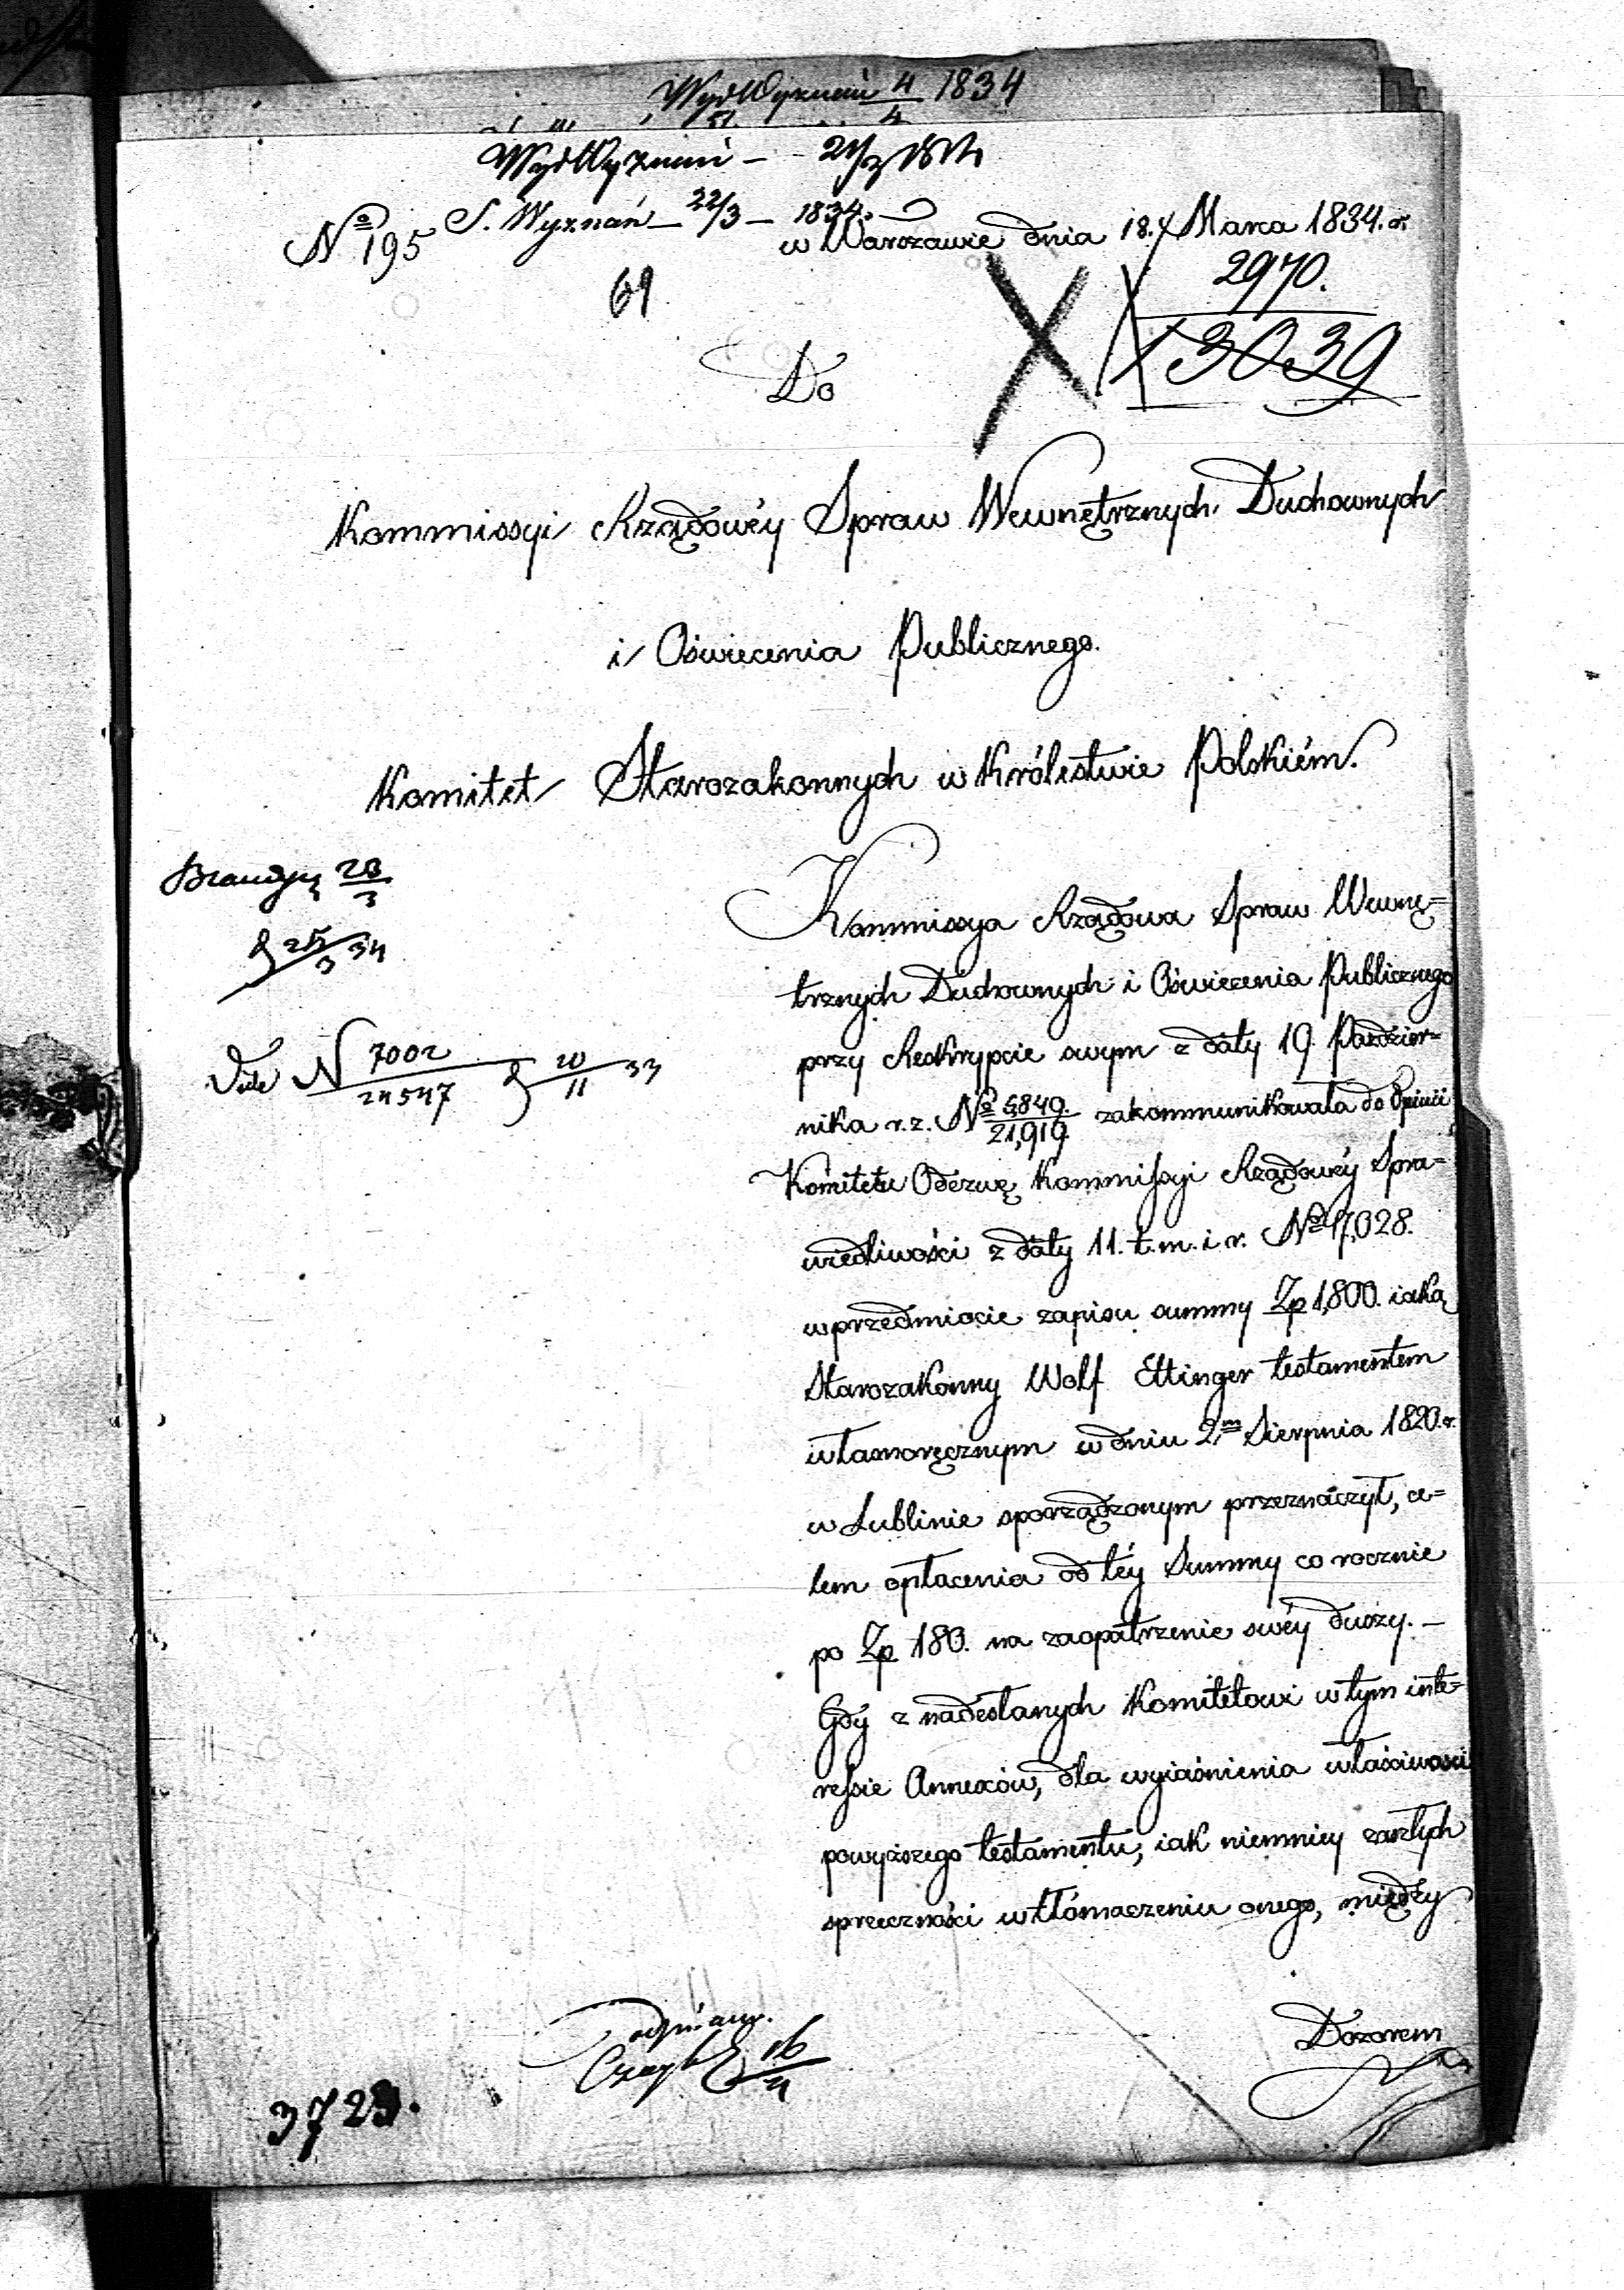 Wyd Wyznań 4/4 1834
Wyd Wyznań –
S. Wyznań – 22/3 – 1834.
No 195 w Warszawie dnia 18. Marca 1834. r.
2970.
69
13039
Do
Kommissyi Rządowéy Spraw Wewnętrznych Duchownych
i Oświecenia Publicznego.
Komitet Starozakonnych w Królestwie Polskiém.
23/3
Kommissya Rządowa Spraw Wewnę=
25/3 34
trznych Duchownych i Oświecenia Publicznego
przy Reskrypcie swym z daty 19. Paździer=
Vide N 7002/24547 20/11 33
nika r. z. No 5849/21,919 zakommunikowała do Opinii
Komitetu Odezwę Kommissyi Rządowéy Spra=
wiedliwości z daty 11. t. m. i r. No 17,028.
w przedmiocie zapisu summy Zp 1,800. iaką
Starozakonny Wolf Ettinger testamentem
własnoręcznym w dniu 2m Sierpnia 1820. r.
w Lublinie sporządzonym przeznaczył, ce=
lem opłacenia od téy Summy co rocznie
po Zp 180. na zaopatrzenie swéy duszy. –
Gdy z nadesłanych Komitetowi w tym inte=
ressie Annexów, dla wyiaśnienia właściwości
powyższego testamentu, iak niemniey zaszłych
sprzeczności w tłómaczeniu onego, między
Dozorem
3723.